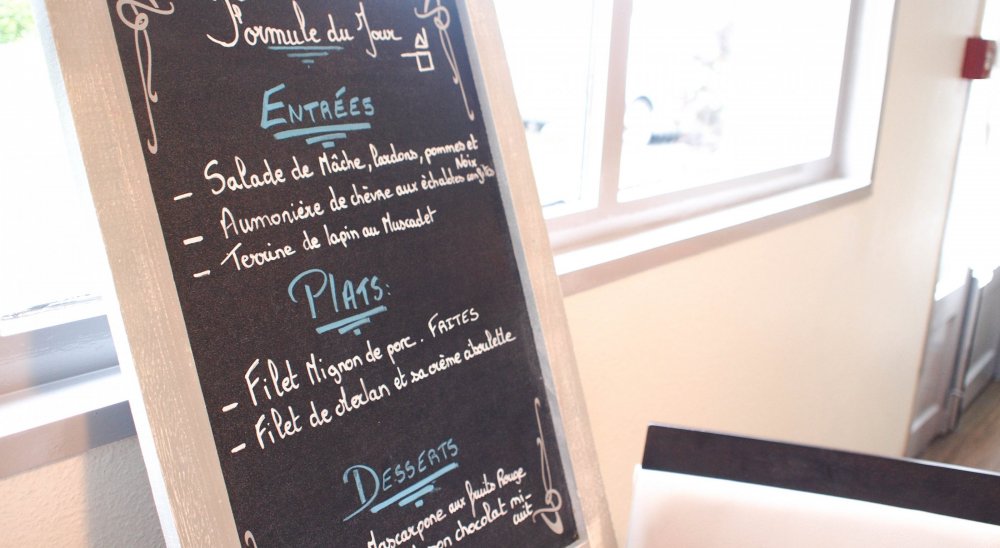 Formule du Jour
ENTRÉES
- Salade de Mâche, lardons, pommes et Noix
- Aumonière de chèvre aux échalotes confites
- Terrine de lapin au Muscadet
PLATS:
- Filet Mignon de porc. FRITES
- Filet de Merlan et sa crème ciboulette
DESSERTS
Mascarpone aux fruits Rouge
chocolat mi-
cuit